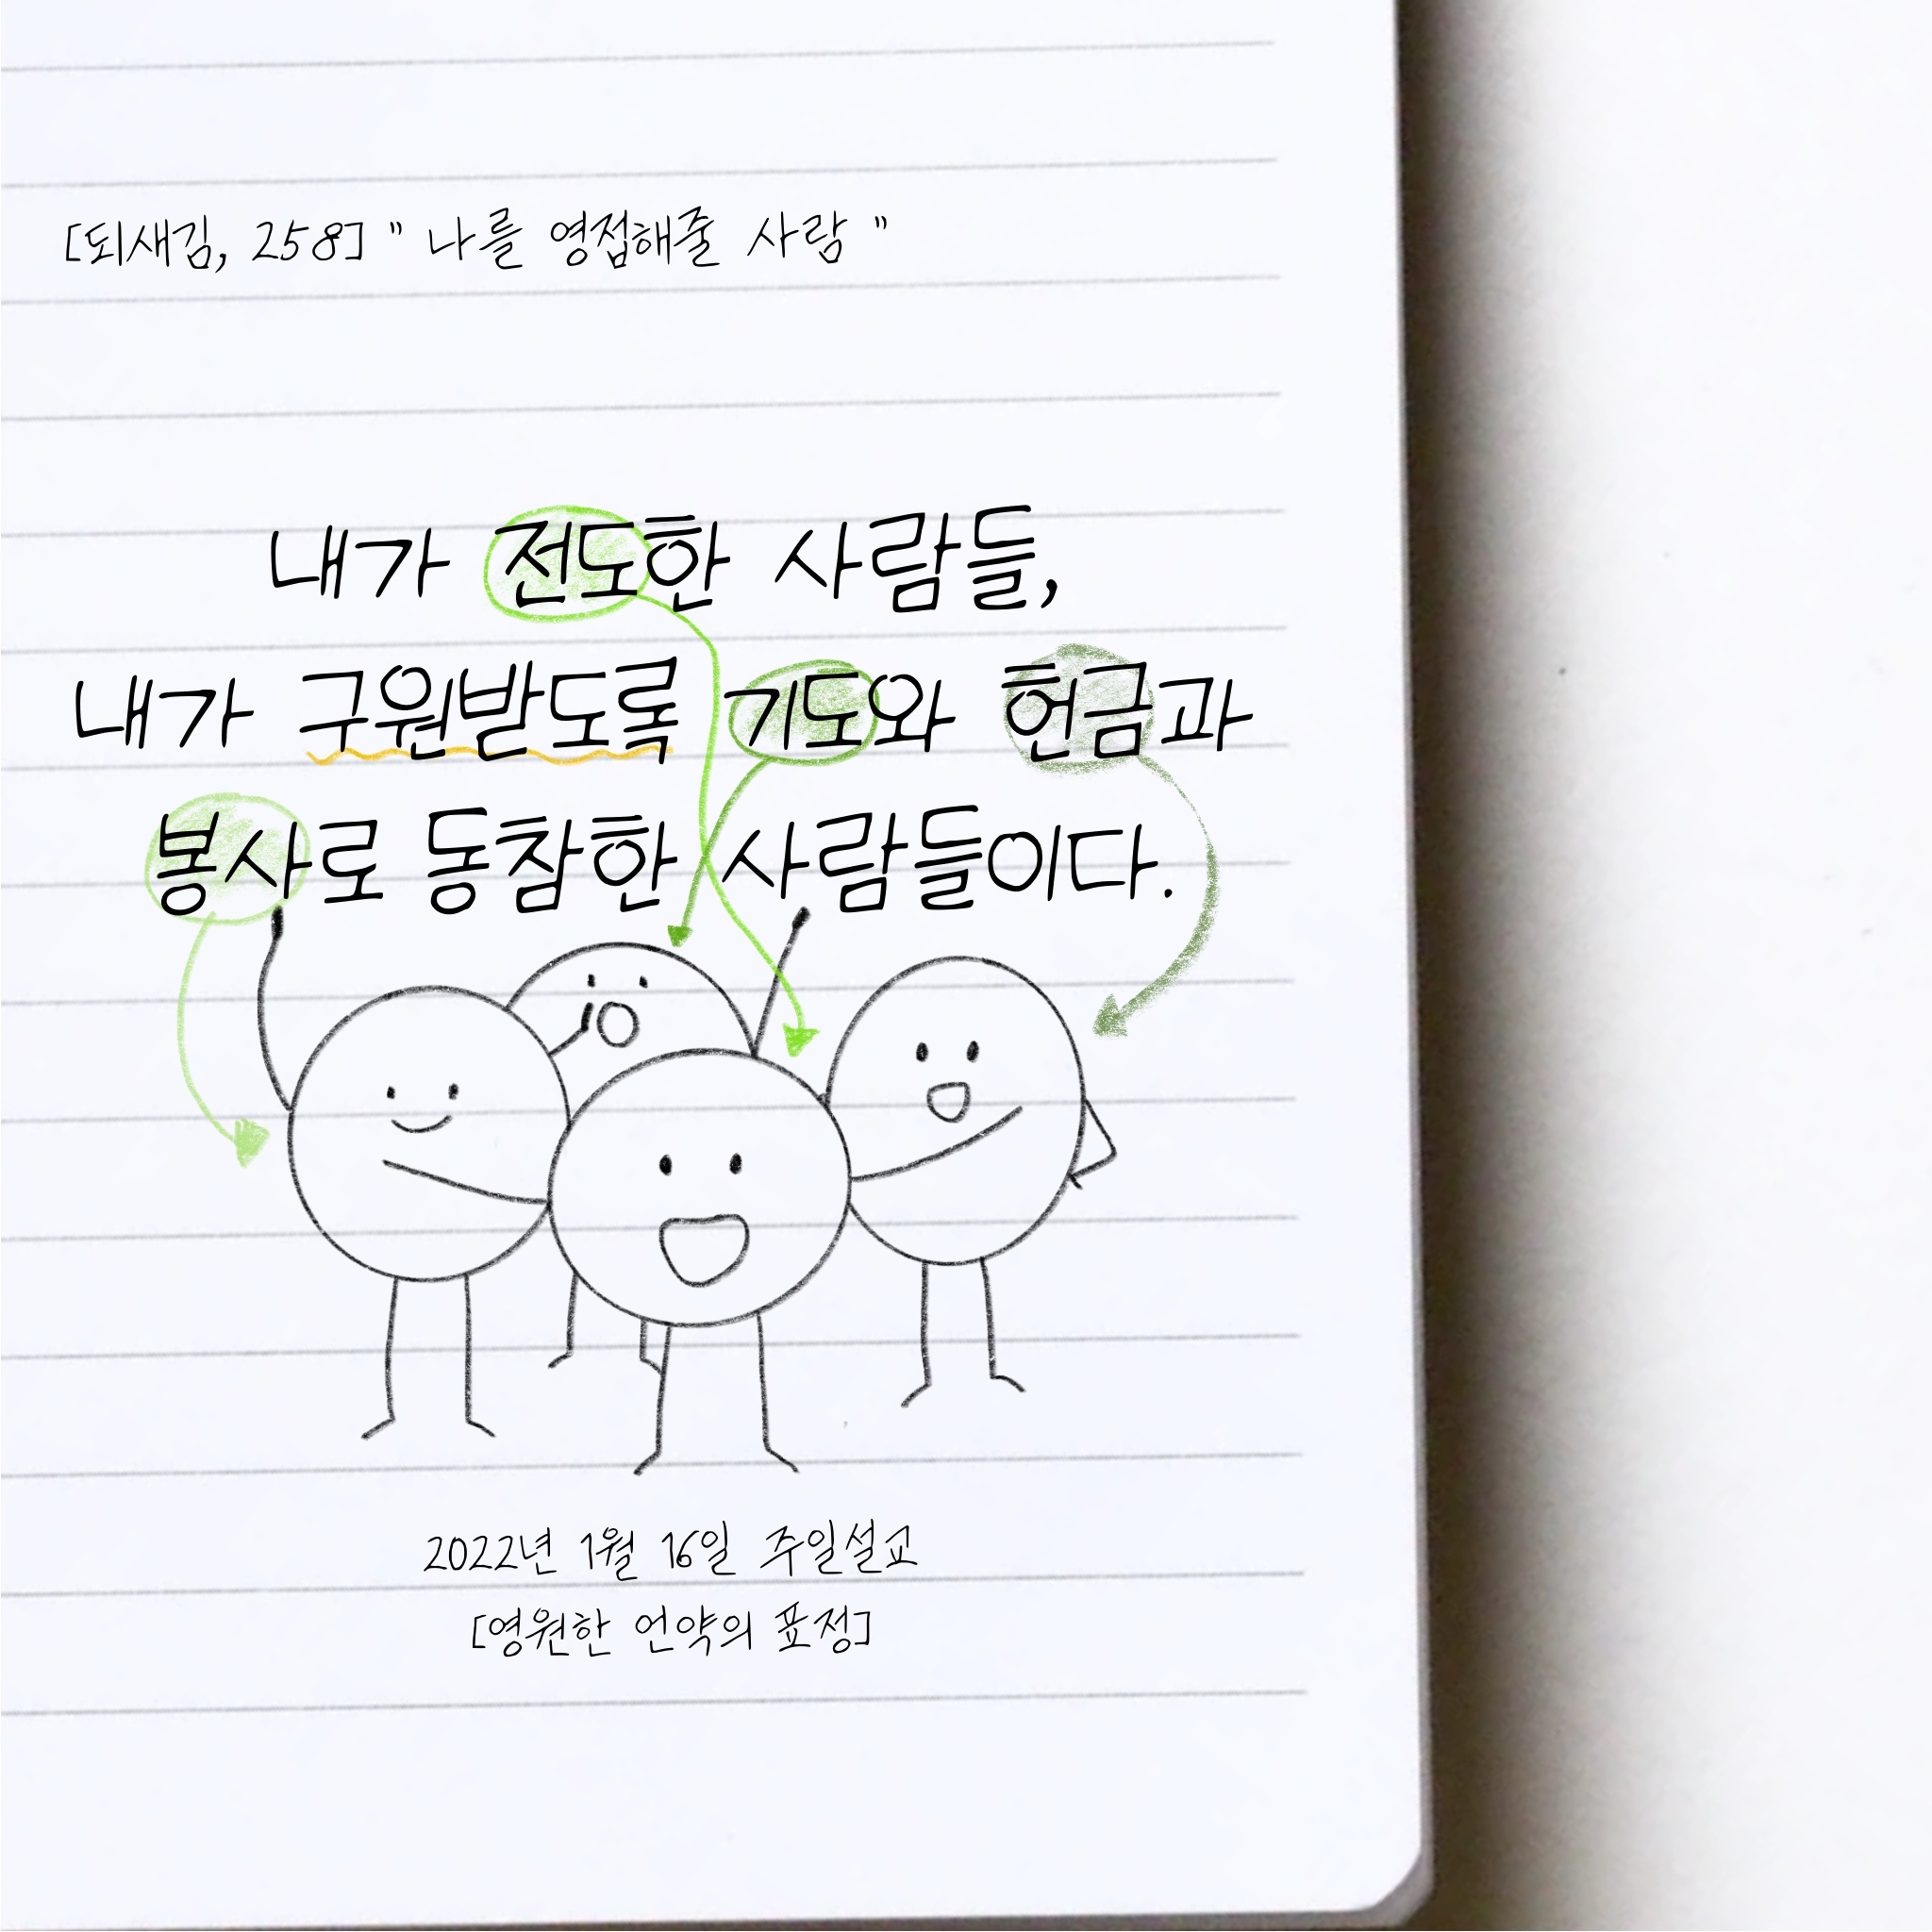 [되새김, 258] " 나를 영접해줄 사람 "
내가 전도한 사람들,
내가 구원받도록 기도와 헌금과
봉사로 동참한 사람들이다.
2022년 1월 16일 주일설교
[영원한 언약의 표정]